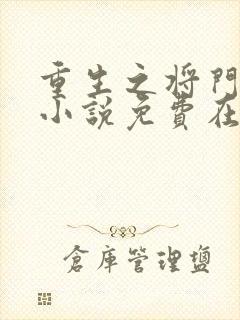 重生之将門
小說免費在
倉庫管理鹽